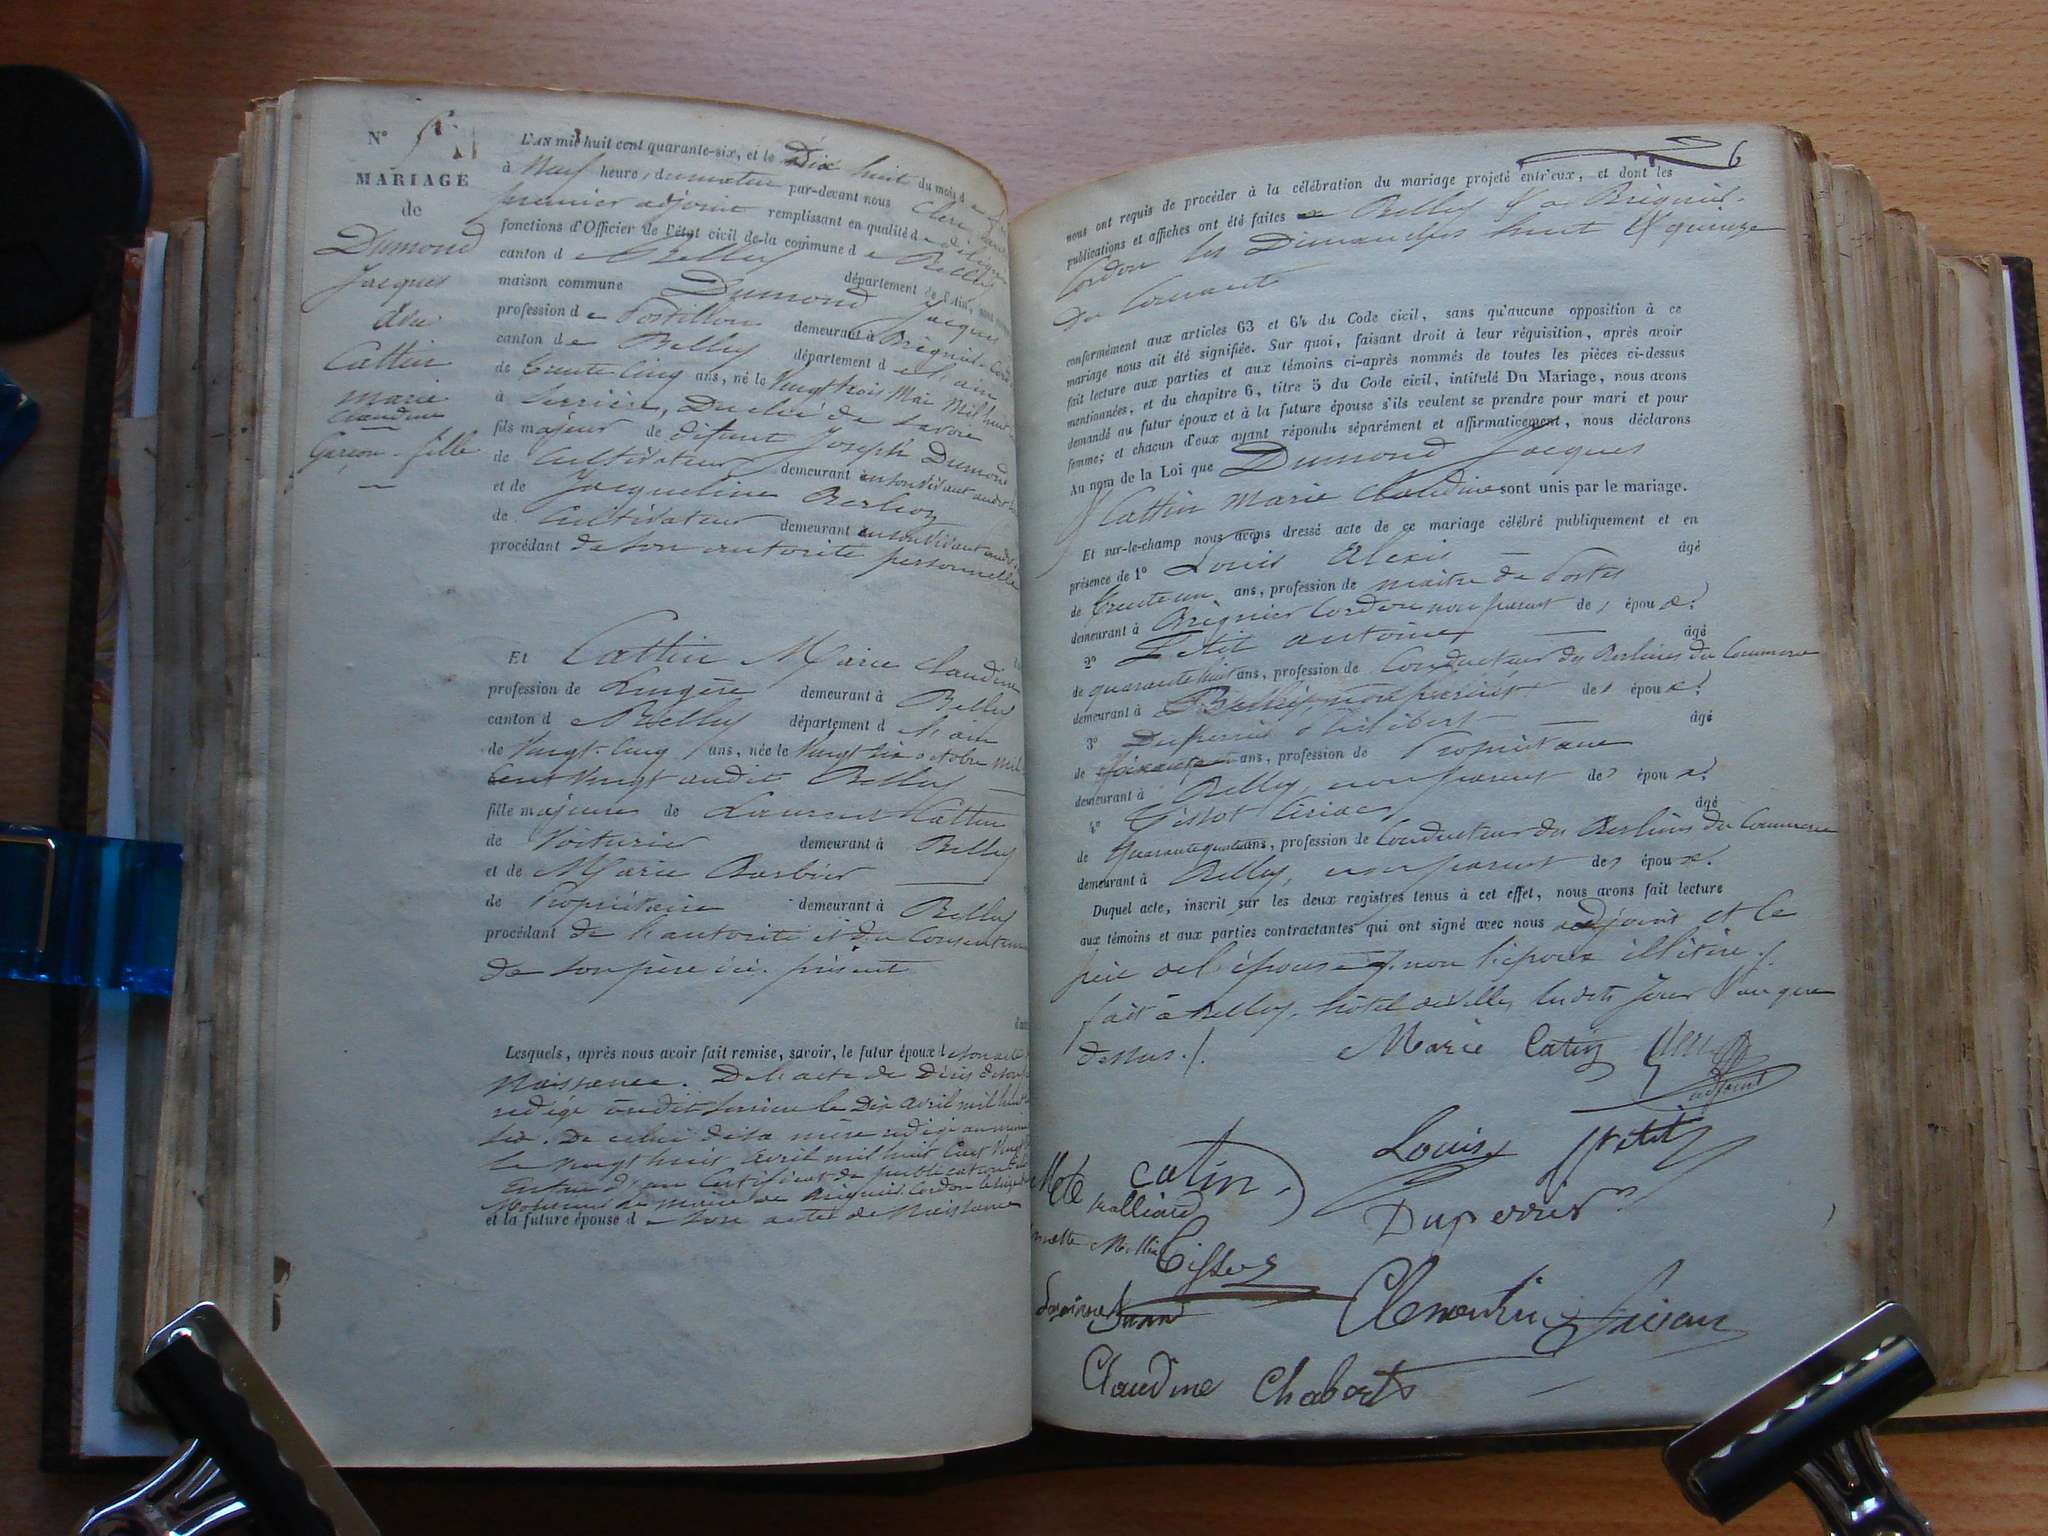 N°
MARIAGE
de
Dumond
Jacques
Avec
Cattin
marie
Claudine
Garçon - fille
L'AN mil huit cent quarante-six, et le Dix huit du mois d
à Neuf heure, du matin par-devant nous Clerc
premier adjoint remplissant en qualité de délégué
fonctions d'Officier de l'état civil de la commune de Belley
canton de Belley département de l'Ain, sont
maison commune Dumond Jacques
profession de Postillon demeurant à Brégnier-Cordon
canton de Belley département de l'ain
de trente cinq ans, né le vingt trois Mai Mil huit
à Serrière, Duché de Savoie
fils majeur de défunt Joseph Dumond
de Cultivateur demeurant en son vivant audit
et de Jacqueline Berlioz
de Cultivateur demeurant en son vivant audit
procédant de son autorité personnelle
Et Cattin Marie Claudine
profession de Lingère demeurant à Belley
canton de Belley département de l'ain
de vingt-cinq ans, née le vingt six octobre mil
cent vingt audit Belley
fille majeure de Laurent Cattin
de Voiturier demeurant à Belley
et de Marie Barbier
de Propriétaire demeurant à Belley
procédant de l'autorité et du Consentement
de son père ici présent
Lesquels, après nous avoir fait remise, savoir, le futur époux de son acte
Naissance. De l'acte de Décès de son
rédigé audit Serrière le Dix avril mil huit
six. De celui de sa mère rédigé au même
le vingt trois avril mil huit cent vingt
Enfin d'un Certificat de publication
Monsieur le maire de Brégnier-Cordon
et la future épouse de son acte de Naissance
6
nous ont requis de procéder à la célébration du mariage projeté entr'eux, et dont les
publications et affiches ont été faites à Belley & à Brégnier-
Cordon les Dimanches huit & quinze
du Courant
conformément aux articles 63 et 64 du Code civil, sans qu'aucune opposition à ce
mariage nous ait été signifiée. Sur quoi, faisant droit à leur réquisition, après avoir
fait lecture aux parties et aux témoins ci-après nommés de toutes les pièces ci-dessus
mentionnées, et du chapitre 6, titre 5 du Code civil, intitulé Du Mariage, nous avons
demandé au futur époux et à la future épouse s'ils veulent se prendre pour mari et pour
femme; et chacun d'eux ayant répondu séparément et affirmativement, nous déclarons
Au nom de la Loi que Dumond Jacques
& Cattin Marie Claudine sont unis par le mariage.
Et sur-le-champ nous avons dressé acte de ce mariage célébré publiquement et en
présence de 1° Louis Alexis âgé
de trente un ans, profession de maître de Postes
demeurant à Brégnier Cordon non parent des époux.
2° Petit antoine âgé
de quarante huit ans, profession de Conducteur des Berlines du Commerce
demeurant à Belley non parent des époux.
3° Duperrier Philibert âgé
de soixante ans, profession de Propriétaire
demeurant à Belley, non parent des époux.
4° Tissot âgé
de quarante quatre ans, profession de Conducteur des Berlines du Commerce
demeurant à Belley, non parent des époux.
Duquel acte, inscrit sur les deux registres tenus à cet effet, nous avons fait lecture
aux témoins et aux parties contractantes qui ont signé avec nous adjoint et le
père de l'épouse, non l'époux illitéré./.
fait à Belley, hôtel de ville, les dits jour & an que
dessus./.
Marie Catin
adjoint
Louis Petit
catin
Duperrier
Tissot
Clementine
Claudine Chabert